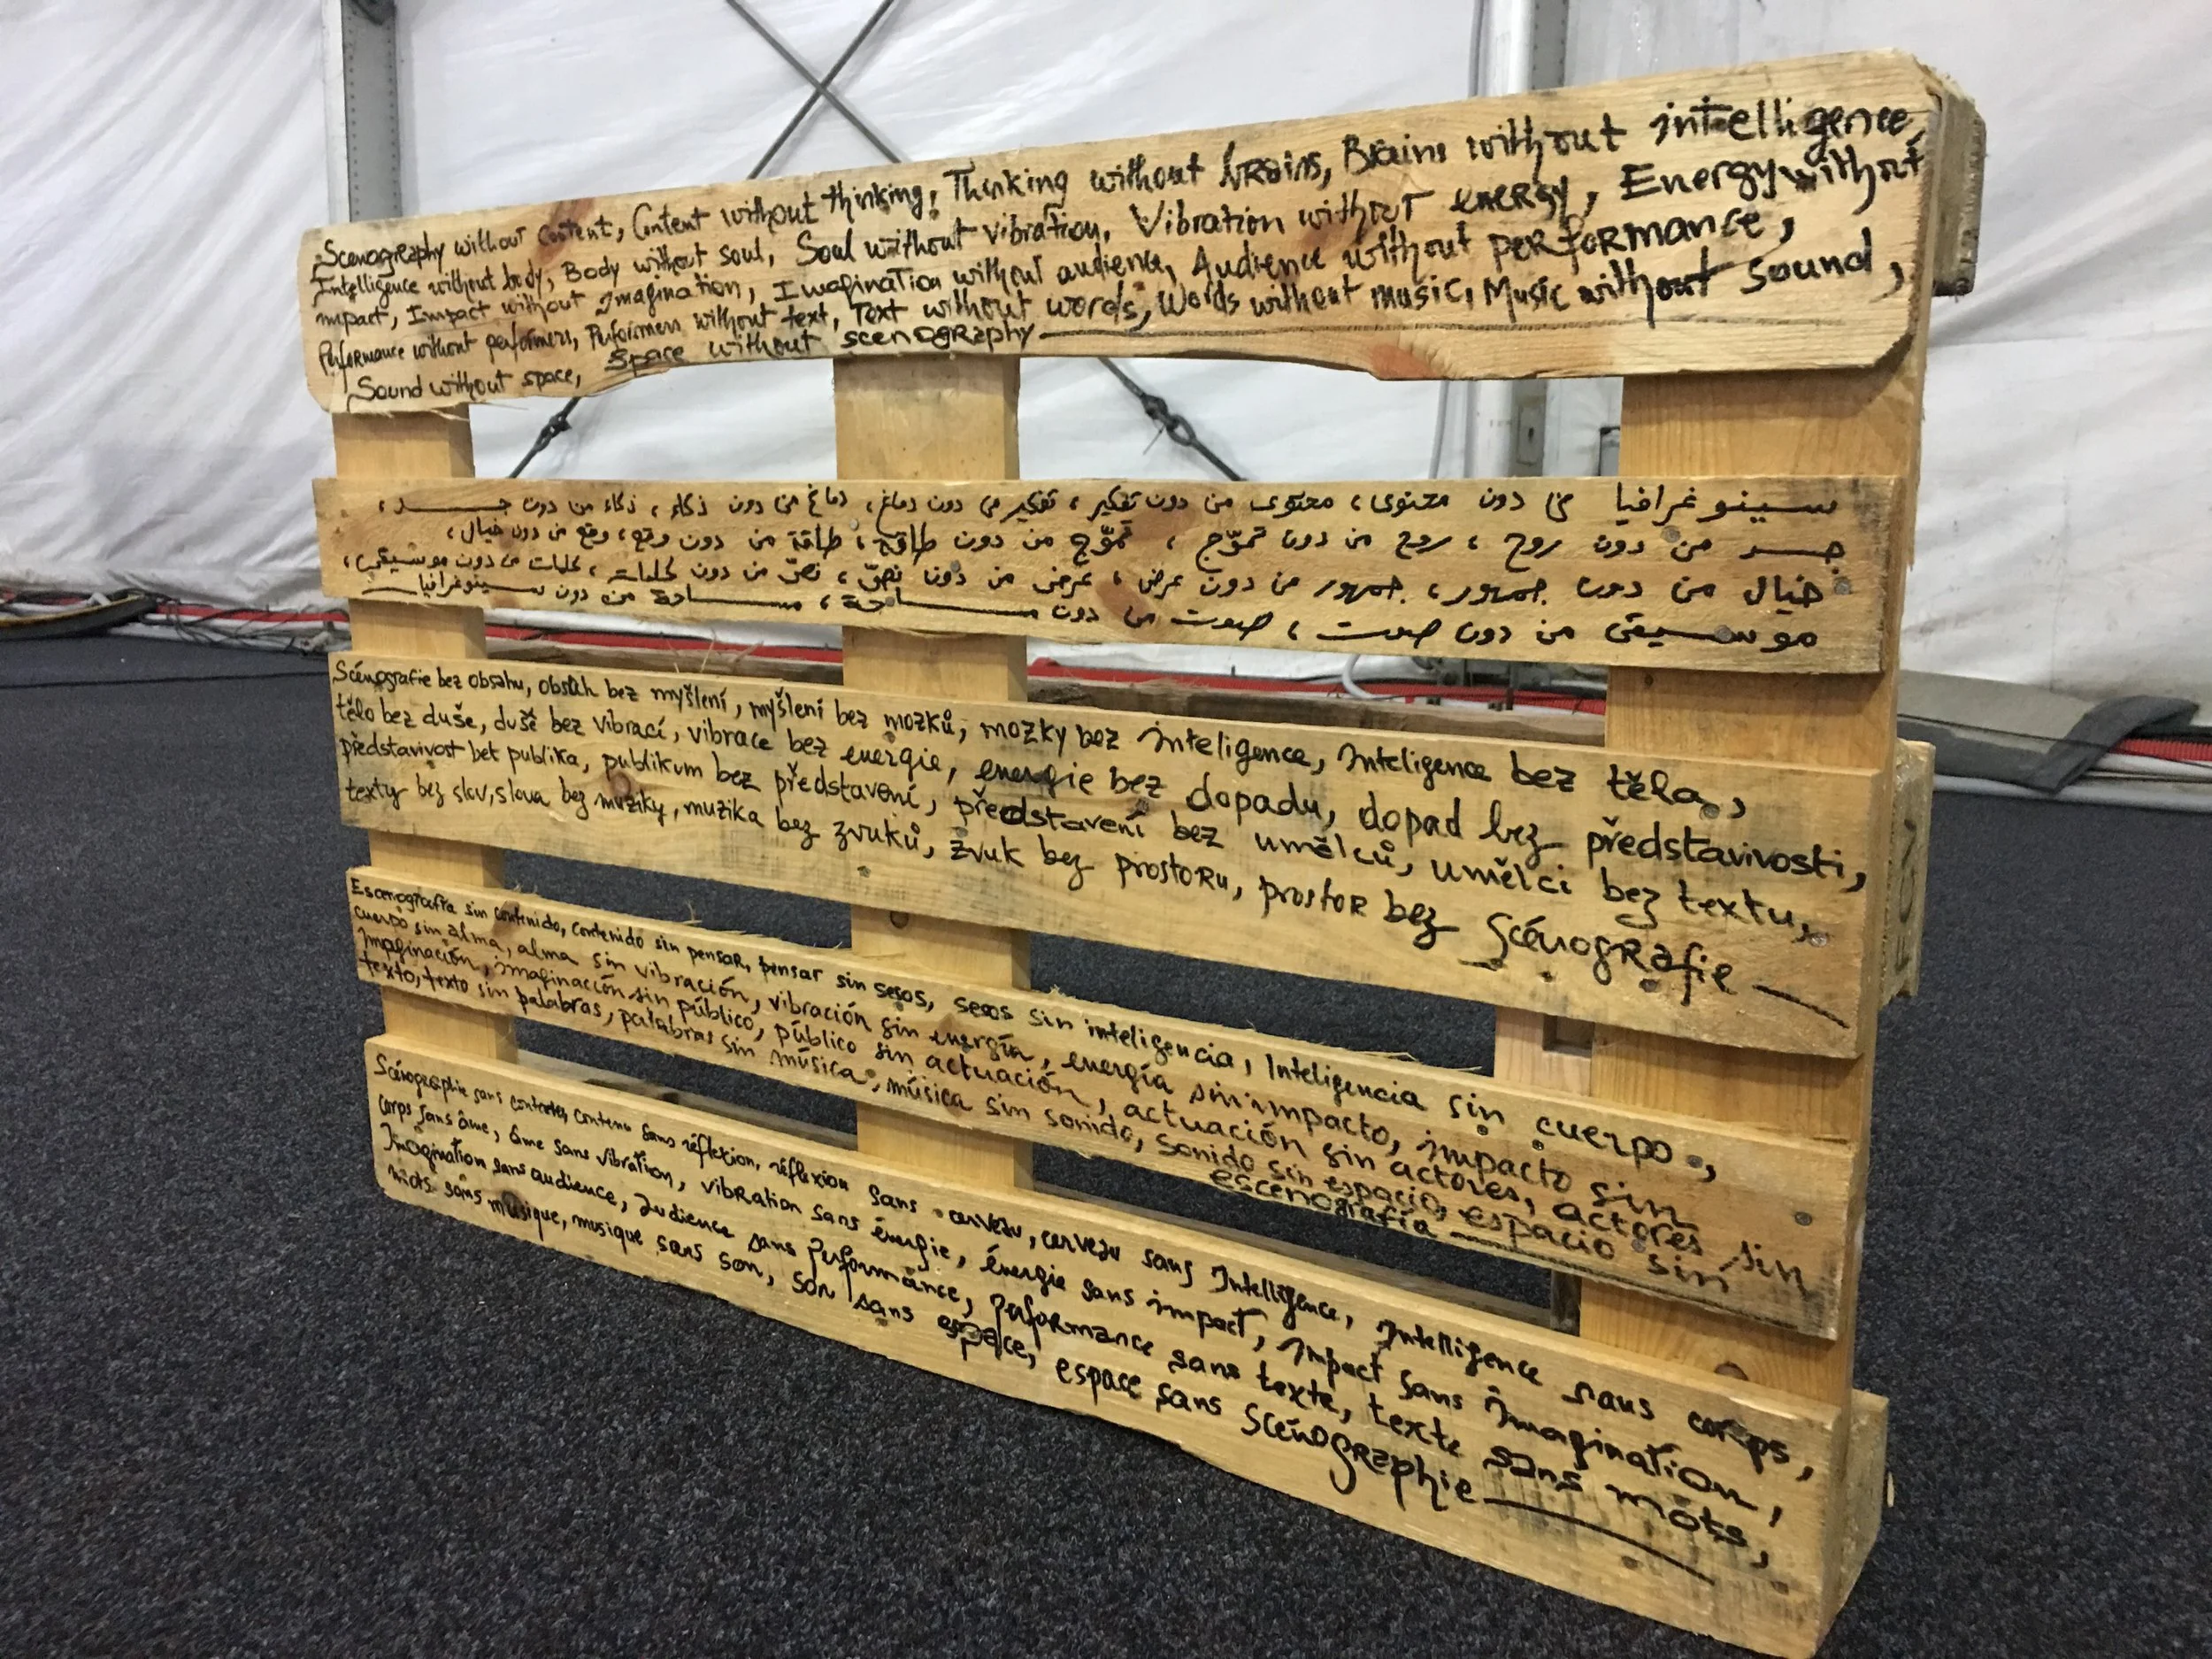 Scenography without content, Content without thinking, Thinking without brains, Brains without intelligence,
Intelligence without body, Body without soul, Soul without vibration, Vibration without energy, Energy without
impact, Impact without Imagination, Imagination without audience, Audience without performance,
Performance without performers, Performers without text, Text without words, Words without music, Music without sound,
Sound without space, Space without scenography
سينوغرافيا من دون محتوى، محتوى من دون تفكير، تفكير من دون دماغ، دماغ من دون ذكاء، ذكاء من دون جسد،
جسد من دون روح، روح من دون تموّج، تموّج من دون طاقة، طاقة من دون وقع، وقع من دون خيال،
خيال من دون جمهور، جمهور من دون عرض، عرض من دون نصّ، نصّ من دون كلمات، كلمات من دون موسيقى،
موسيقى من دون صوت، صوت من دون مساحة، مساحة من دون سينوغرافيا
Scénografie bez obsahu, obsah bez myšlení, myšlení bez mozků, mozky bez inteligence, Inteligence bez těla,
tělo bez duše, duše bez vibrací, vibrace bez energie, energie bez dopadu, dopad bez představivosti,
představivost bez publika, publikum bez představení, představení bez umělců, umělci bez textu,
texty bez slov, slova bez muziky, muzika bez zvuků, zvuk bez prostoru, prostor bez Scénografie
Escenografía sin contenido, contenido sin pensar, pensar sin sesos, sesos sin inteligencia, Inteligencia sin cuerpo,
cuerpo sin alma, alma sin vibración, vibración sin energía, energía sin impacto, impacto sin
imaginación, imaginación sin público, público sin actuación, actuación sin actores, actores sin
texto, texto sin palabras, palabras sin música, música sin sonido, sonido sin espacio, espacio sin
escenografía
Scénographie sans contenu, contenu sans réflexion, réflexion sans cerveau, cerveau sans Intelligence, Intelligence sans corps,
corps sans âme, âme sans vibration, vibration sans énergie, énergie sans impact, Impact sans imagination,
Imagination sans audience, audience sans performance, performance sans texte, texte sans mots,
mots sans musique, musique sans son, son sans espace, espace sans scénographie